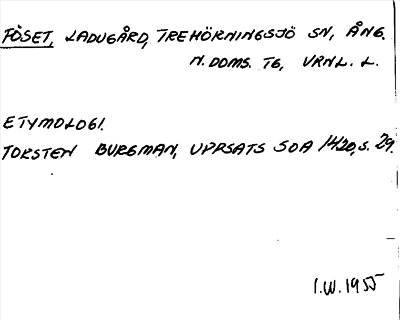 FÖSET, LADUGÅRD, TREHÖRNINGSJÖ SN, ÅNG.
N. DOMS. TG, VRNL. L.
ETYMOLOGI.
TORSTEN BURGMAN, UPPSATS SOA 1420, S. 29.
I.W. 1955